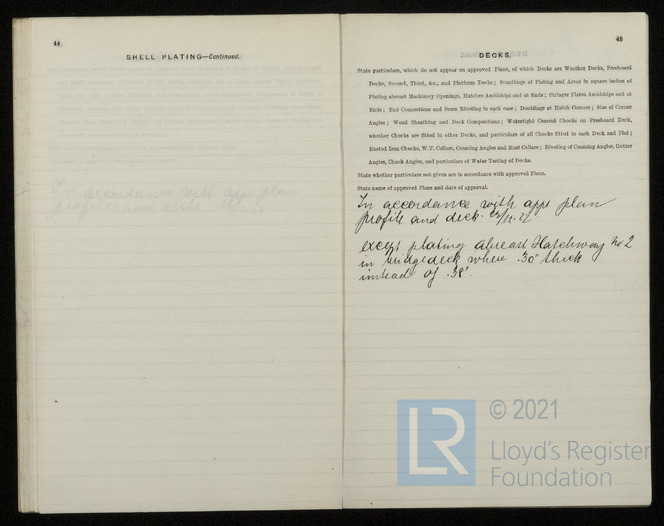 44
SHELL PLATING—Continued.
46
DECKS.
State particulars, which do not appear on approved Plans, of which Decks are Weather Decks, Freeboard
Decks, Second, Third, &c., and Platform Decks; Scantlings of Plating and Areas in square inches of
Plating abreast Machinery Openings, Hatches Amidships and at Ends; Stringer Plates Amidships and at
Ends; End Connections and Seam Riveting in each case; Doublings at Hatch Corners; Size of Corner
Angles; Wood Sheathing and Deck Compositions; Watertight Cement Chocks on Freeboard Deck,
whether Chocks are fitted in other Decks, and particulars of all Chocks fitted in each Deck and Flat;
Rusted Iron Chocks, W.T. Collars, Coaming Angles and Mast Collars; Riveting of Coaming Angles, Gutter
Angles, Chock Angles, and particulars of Water Testing of Decks.
State whether particulars not given are in accordance with approved Plans.
State name of approved Plans and date of approval.
In accordance with app. plan
profile and deck
except plating abreast Hatchway No 2
in bridge deck where .30" thick
instead of .38".
LR
© 2021
Lloyd's Register
Foundation